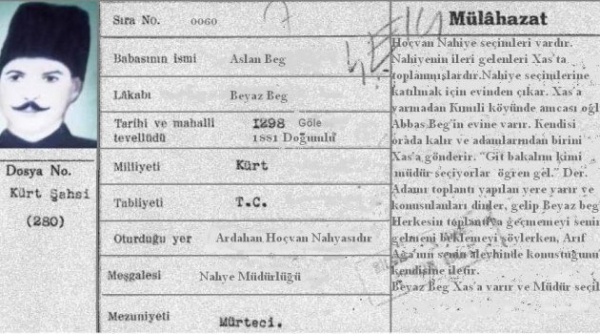 Sıra No. 0060
Babasının İsmi Aslan Beg
Lâkabı Beyaz Beg
Tarihi ve mahalli tevellüdü 1298 Göle
1881 Doğumlu
Milliyeti Kürt
Tabliyeti T.C.
Oturduğu yer Ardahan Hoçvan Nahyasıdır
Meşgalesi Nahye Müdürlüğü
Mezuniyeti Mürteci.
Dosya No.
Kürt Şahsi
(280)
Mülâhazat
Hoçvan Nahiye seçimleri vardır.
Nahiyenin ileri gelenleri Xas'ta
toplanmışlardır.Nahiye seçimlerine
katılmak için evinden çıkar. Xas'a
varmadan Kınıli köyünde amcası oğl
Abbas Beg'in evine varır. Kendisi
orada kalır ve adamlarından birini
Xas'a gönderir. "Git bakalım kimi
müdür seçiyorlar öğren gel." Der.
Adamı toplantı yapılan yere varır ve
konuşulanları dinler, gelip Beyaz beg'
Herkesin toplantıya geçmemeyi senin
gelmeni beklemeyi söylerken, Arif
Ağa'nın senin aleyhinde konuştuğunu
kendisine iletir.
Beyaz Beg Xas'a varır ve Müdür seçil